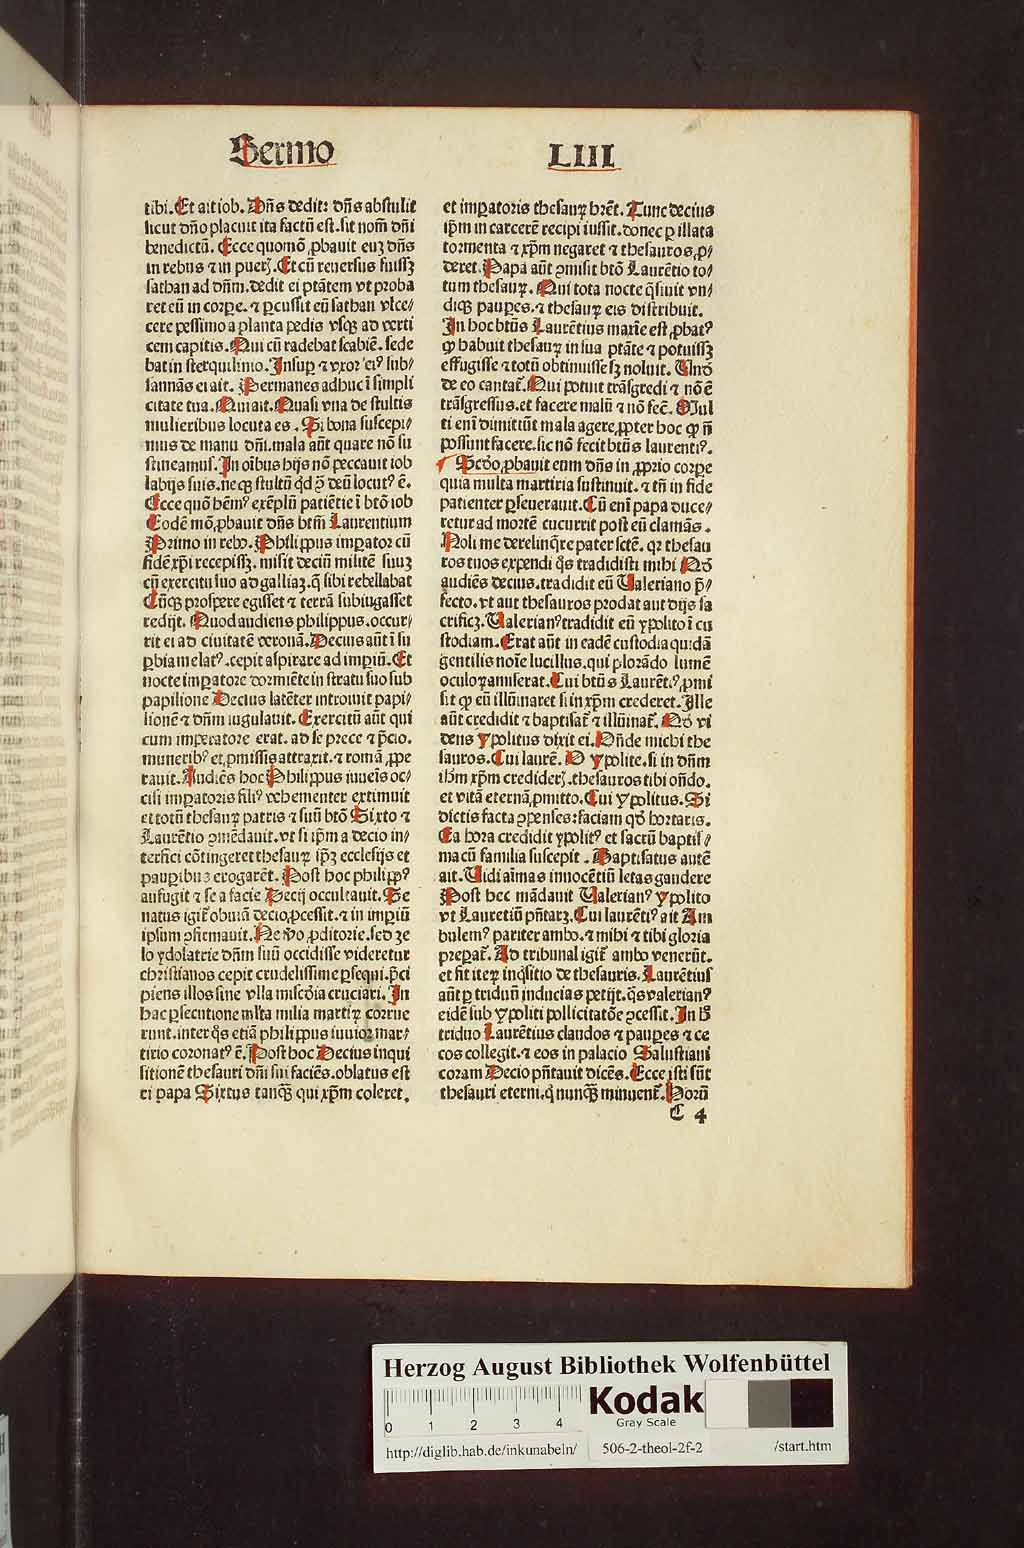 Sermo LIII
tibi. Et ait iob. Dñs dedit: dñs abstulit
sicut dño placuit ita factū est. sit nom̄ dñi
benedictū. Ecce quomō ꝓbauit euʒ dñs
in rebus ⁊ in pueris. Et cū reuersus fuissʒ
sathan ad dñm. dedit ei ptātem vt proba
ret eū in corpe. ⁊ ꝑcussit eū sathan vlce/
cere pessimo a planta pedis vsqʒ ad verti
cem capitis. Qui cū radebat scabiē. sede
bat in sterquilinio. Insuꝑ ⁊ vxor ei⁹ sub/
sannās ei ait. Permanes adhuc ī simpli
citate tua. Qui ait. Quasi vna de stultis
mulieribus locuta es. Si bona suscepi/
mus de manu dñi. mala aūt quare nō su
stineamus. In oībus hijs nō peccauit iob
labijs suis. neqʒ stultū qd ꝯ̄ deū locut⁹ ē.
Ecce quō hēm⁹ exēplū patiētie ī btō iob
Eodē mō ꝓbauit dñs btm̄ Laurentium
Primo in reb⁹. Philippus imꝑator cū
fidē xp̄i recepissʒ. misit deciū militē suuʒ
cū exercitu suo ad galliaʒ. q̄ sibi rebellabat
Cūqʒ prospere egisset ⁊ terrā subiugasset
redijt. Quod audiens philippus. occur/
rit ei ad ciuitatē veronā. Decius aūt ī su
ꝑbia melat⁹. cepit aspirare ad imꝑiū. Et
nocte imꝑatore dormiēte in stratu suo sub
papilione Decius latēter introiuit papi/
lionē ⁊ dñm iugulauit. Exercitū aūt qui
cum imperatore erat. ad se prece ⁊ p̄cio.
munerib⁹ et ꝓmissis attraxit. ⁊ romā ꝓpe
rauit. Audiēs hoc Philippus iuuēis oc/
cisi imꝑatoris fili⁹ vehementer extimuit
et totū thesauꝝ patris ⁊ suū btō Sixto ⁊
Laurētio ꝯmēdauit. vt si ip̄m a decio in/
terfici cōtingeret thesauꝝ ip̄ʒ ecclesijs et
pauꝑibus erogarēt. Post hoc philipp⁹
aufugit ⁊ se a facie Decij occultauit. Se
natus igit̄ obuiā decio ꝓcessit. ⁊ in imꝑiū
ipsum ꝯfirmauit. Ne v̄o ꝓditorie. sed ʒe
lo ydolatrie dñm suū occidisse videretur
christianos cepit crudelissime ꝑsequi. p̄ci
piens illos sine vlla mis̄cdia cruciari. In
hac ꝑsecutione m̄lta milia martiꝝ corrue
runt. inter q̄s etiā philippus iuuior mar/
tirio coronat⁹ ē. Post hoc Decius inqui
sitionē thesauri dñi sui faciēs. oblatus est
ei papa Sixtus tanqʒ qui xp̄m coleret.
et imꝑatoris thesauꝝ hr̄et. Tunc decius
ip̄m in carcerē recipi iussit. donec ꝑ illata
tormenta ⁊ xp̄m negaret ⁊ thesauros ꝓ/
deret. Papa aūt ꝯmisit btō Laurētio to/
tum thesauꝝ. Qui tota nocte q̄siuit vn/
diqʒ pauꝑes. ⁊ thesauꝝ eis distribuit.
In hoc btūs Laurētius maxīe est ꝓbat⁹
ꝙ habuit thesauꝝ in sua ptāte ⁊ potuissʒ
effugisse ⁊ totū obtinuisse sʒ noluit. Unō
de eo cantat̄. Qui potuit trāsgredi ⁊ nō ē
trāsgressus. et facere malū ⁊ nō fec̄. Mul
ti enī dimittūt mala agere ꝓpter hoc ꝙ n̄
possunt facere. sic nō fecit btūs laurenti⁹.
Scdo ꝓbauit eum dñs in ꝓprio corpe
quia multa martiria sustinuit. ⁊ tn̄ in fide
patienter ꝑseuerauit. Cū enī papa duce/
retur ad mortē cucurrit post eū clamās.
Noli me derelinq̄re pater sctē. qꝛ thesau
ros tuos expendi q̄s tradidisti mihi Nō
audiēs decius. tradidit eū Valeriano p̄/
fecto. vt aut thesauros prodat aut dijs sa
crificʒ. Valerian⁹ tradidit eū ypolito ī cu
stodiam. Erat aūt in eadē custodia quidā
gentilis noīe lucillus. qui plorādo lumē
oculoꝝ amiserat. Cui btūs Laurēti⁹ ꝓmi
sit ꝙ eū illūinaret si in xp̄m crederet. Ille
aūt credidit ⁊ baptisat̄ ⁊ illūinat̄. Nō vi
dens ypolitus dixit ei. Ondē michi the
sauros. Cui laurē. O ypolite. si in dñm
ihm̄ xp̄m crediderꝭ. thesauros tibi on̄do.
et vitā eternā ꝓmitto. Cui ypolitus. Si
dictis facta ꝯpenses: faciam qd̄ hortaris.
Ea hora credidit ypolit⁹ et sacrū baptis/
ma cū familia suscepit. Baptisatus autē
ait. Vidi aīmas innocētiū letas gaudere
Post hec mādauit Valerian⁹ ypolito
vt Lauretiū pn̄tarʒ. Cui laurēti⁹ ait Am
bulem⁹ pariter ambo. ⁊ mihi ⁊ tibi gloria
preꝑat̄. Ad tribunal igit̄ ambo venerūt.
et fit iteꝝ inq̄sitio de thesauris. Laurētius
aūt ꝑ triduū inducias petijt. q̄s valerian⁹
eidē sub ypoliti pollicitatōe ꝯcessit. In h̄
triduo Laurētius claudos ⁊ pauꝑes ⁊ ce
cos collegit. ⁊ eos in palacio Salustiani
coram Decio pn̄tauit dicēs. Ecce isti sūt
thesauri eterni. q̄ nunqʒ minuent̄. Horū
C 4
Herzog August Bibliothek Wolfenbüttel
Kodak
Gray Scale
0 1 2 3 4
http://diglib.hab.de/inkunabeln/ 506-2-theol-2f-2 /start.htm